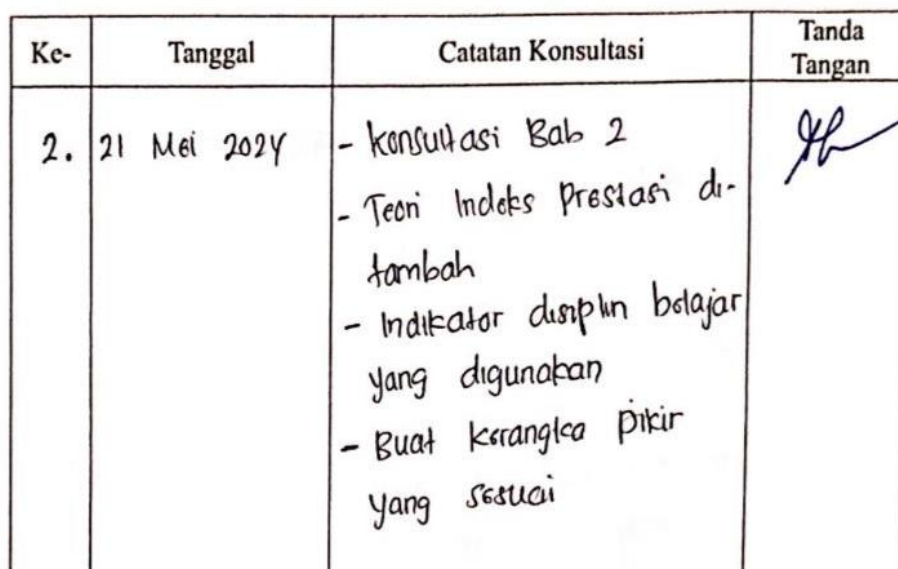 Ke- Tanggal Catatan Konsultasi Tanda Tangan
2. 21 Mei 2024 - Konsultasi Bab 2
- Teori Indeks Prestasi di-
tambah
- Indikator disiplin belajar
yang digunakan
- Buat kerangka pikir
yang sesuai